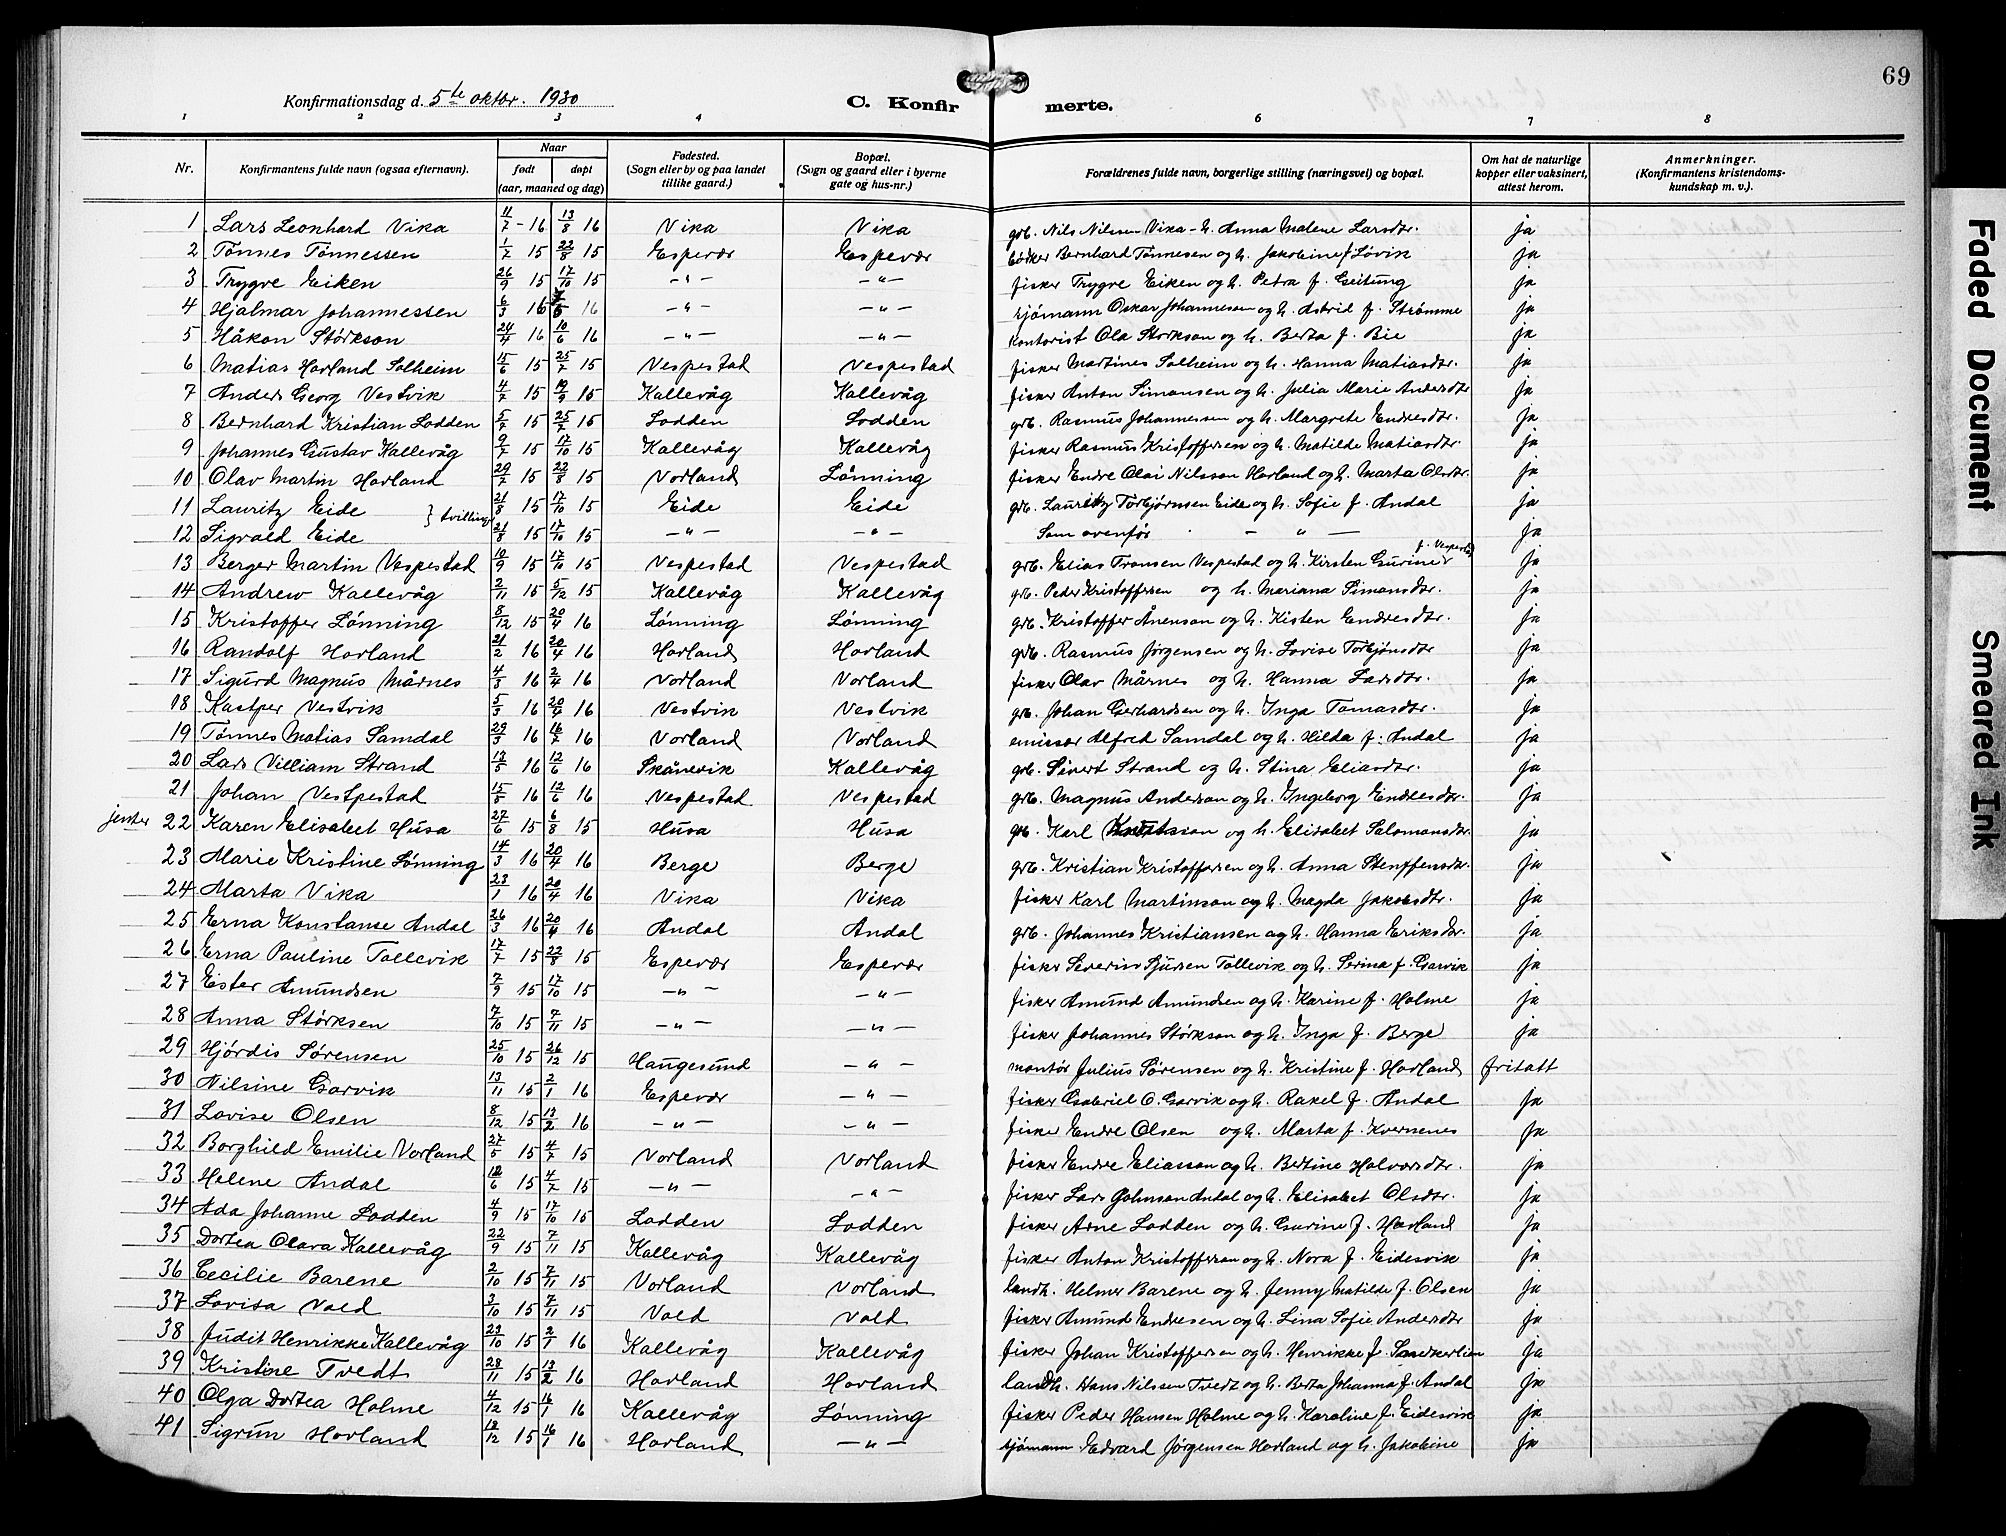 69
Konfirmationsdag d. 5te oktbr. 1930
C. Konfirmerte.
1 2 3 4 5 6 7 8
Nr. | Konfirmantens fulde navn (ogsaa efternavn). | Naar født døpt (aar, maaned og dag) | Fødested. (Sogn eller by og paa landet tillike gaard.) | Bopæl. (Sogn og gaard eller i byerne gate og hus-nr.) | Forældrenes fulde navn, borgerlige stilling (næringsvei) og bopæl. | Om hat de naturlige kopper eller vaksinert, attest herom. | Anmerkninger. (Konfirmantens kristendomskundskap m. v.).
1 Lars Leonhard Vika 11/7 - 16 13/8 16 Vika Vika grb. Nils Nilssen Vika - h. Anna Malene Larsdtr. ja
2 Tønnes Tønnessen 1/7 15 22/8 15 Espevær Espevær bødker Bernhard Tønnesen og h. Jakobine f. Løvik ja
3 Trygve Eiken 26/9 15 17/10 15 -"- -"- fisker Trygve Eiken og h. Petra f. Geitung ja
4 Hjalmar Johannessen 6/3 16 16 -"- -"- sjømann Oskar Johannessen og h. Astrid f. Strømme ja
5 Håkon Størkson 24/4 16 10/6 16 -"- -"- kontorist Ola Storkson og h. Berta f. Bie ja
6 Matias Hovland Solheim 15/6 15 25/7 15 Vespestad Vespestad fisker Martines Solheim og h. Hanna Matiasdtr. ja
7 Anders Georg Vestvik 4/7 15 19/9 15 Kallevåg Kallevåg fisker Anton Simonsen og h. Julia Marie Andersdtr ja
8 Bernhard Kristian Lodden 5/7 15 25/7 15 Lodden Lodden grb. Rasmus Johannessen og h. Margrete Endresdtr. ja
9 Johannes Gustav Kallevåg 9/7 15 17/10 15 Kallevåg Kallevåg fisker Rasmus Kristoffersen og h. Matilde Matiasdtr. ja
10 Olav Martin Hovland 29/7 15 22/8 15 Vorland Lønning fisker Endre Olai Nilsson Hovland og h. Marta Olsdtr. ja
11 Lauritz Eide } tvillinger 21/8 15 17/10 15 Eide Eide grb. Lauritz Torbjørnsen Eide og h. Sofie f. Andal ja
12 Sigvald Eide 21/8 15 17/10 15 -"- -"- Som ovenfor - " - ja
13 Berger Martin Vespestad 10/9 15 17/10 15 Vespestad Vespestad grb. Elias Tronsen Vespestad og h. Kirsten Gurine f. Vespestad ja
14 Andrew Kallevåg 2/11 15 5/12 15 Kallevåg Kallevåg grb. Peder Kristoffersen og h. Mariana Simonsdtr. ja
15 Kristoffer Lønning 8/12 15 20/4 16 Lønning Lønning grb. Kristoffer Ånenson og h. Kisten Endresdtr. ja
16 Randolf Hovland 21/2 16 20/4 16 Hovland Hovland grb. Rasmus Jørgensen og h. Lovise Torbjønsdtr ja
17 Sigurd Magnus Mårnes 4/3 16 2/4 16 Vorland Vorland fisker Olav Mårnes og h. Hanna Larsdtr. ja
18 Kastper Vestvik 5/3 16 20/4 16 Vestvik Vestvik grb. Johan Gerhardsen og h. Inga Tomasdtr. ja
19 Tønnes Matias Samdal 29/3 16 16/7 16 Vorland Vorland emissær Alfred Samdal og h. Hilda f. Andal ja
20 Lars Villiam Strand 13/5 16 12/6 16 Skånevik Kallevåg grb. Sivert Strand og h. Stina Eliasdtr. ja
21 Johan Vestpestad 15/5 16 12/6 16 Vespestad Vespestad grb. Magnus Anderson og h. Ingeborg Endresdtr. ja
jenter 22 Karen Elisabet Husa 27/6 15 6/8 15 Husa Husa grb. Karl Knutsson og h. Elisabet Salomonsdtr. ja
23 Marie Kristine Lønning 14/3 16 20/4 16 Berge Berge grb. Kristian Kristoffersen og h. Anna Stenffensdtr. ja
24 Marta Vika 23/1 16 20/4 16 Vika Vika fisker Karl Martinson og h. Magda Jakobsdtr. ja
25 Erna Konstanse Andal 26/3 16 20/4 16 Andal Andal grb. Johannes Kristiansen og h. Hanna Eriksdtr. ja
26 Erna Pauline Tollevik 17/7 15 22/8 15 Espevær Espevær fisker Severin Sjursen Tollevik og h. Serina f. Garvik ja
27 Ester Amundsen 7/9 15 17/10 15 -"- -"- fisker Amund Amundsen og h. Karine f. Holme ja
28 Anna Størksen 7/10 15 7/11 15 -"- -"- fisker Johannes Størkson og h. Inga f. Berge ja
29 Hjördis Sørensen 25/10 15 26/12 15 Haugesund -"- montør Julius Sørensen og h. Kristine f. Hovland fritatt
30 Nilsine Garvik 13/11 15 2/1 16 Espevær -"- fisker Gabriel O. Garvik og h. Rakel f. Andal ja
31 Lovise Olsen 8/12 15 13/2 16 -"- -"- fisker Endre Olsen og h. Marta f. Kvernenes ja
32 Borghild Emilie Vorland 27/5 15 4/7 15 Vorland Vorland fisker Endre Eliasson og h. Bertine Halvorsdtr. ja
33 Helene Andal 12/6 15 4/7 15 -"- -"- fisker Lars Johnson Andal og h. Elisabet Olsdtr. ja
34 Ada Johanne Lodden 4/9 15 17/10 15 Lodden Lodden fisker Arne Lodden og h. Gurine f. Hovland ja
35 Dortea Olava Kallevåg 22/9 15 7/11 15 Kallevåg Kallevåg fisker Anton Kristofferson og h. Nora f. Eidesvik ja
36 Cecilie Barene 2/10 15 7/11 15 Vorland Vorland landh. Helmer Barene og h. Jenny Matilde f. Olsen ja
37 Lovisa Vold 3/10 15 7/11 15 Vold Vold fisker Amund Endresen og h. Lina Sofie Andersdtr ja
38 Judit Henrikke Kallevåg 23/10 15 2/1 16 Kallevåg Kallevåg fisker Johan Kristoffersen og h. Henrikke f. Snekkerlien ja
39 Kristine Tvedt 28/11 15 13/2 16 Hovland Hovland landh. Hans Nilssen Tvedt og h. Berta Johanna f. Andal ja
40 Olga Dortea Holme 4/12 15 16/1 16 Kallevåg Lønning fisker Peder Hansen Holme og h. Karoline f. Eidesvik ja
41 Sigrun Hovland 13/12 15 16/1 16 Hovland -"- sjømann Edvard Jørgensen Hovland og h. Jakobine ja
Faded Document
Smeared Ink